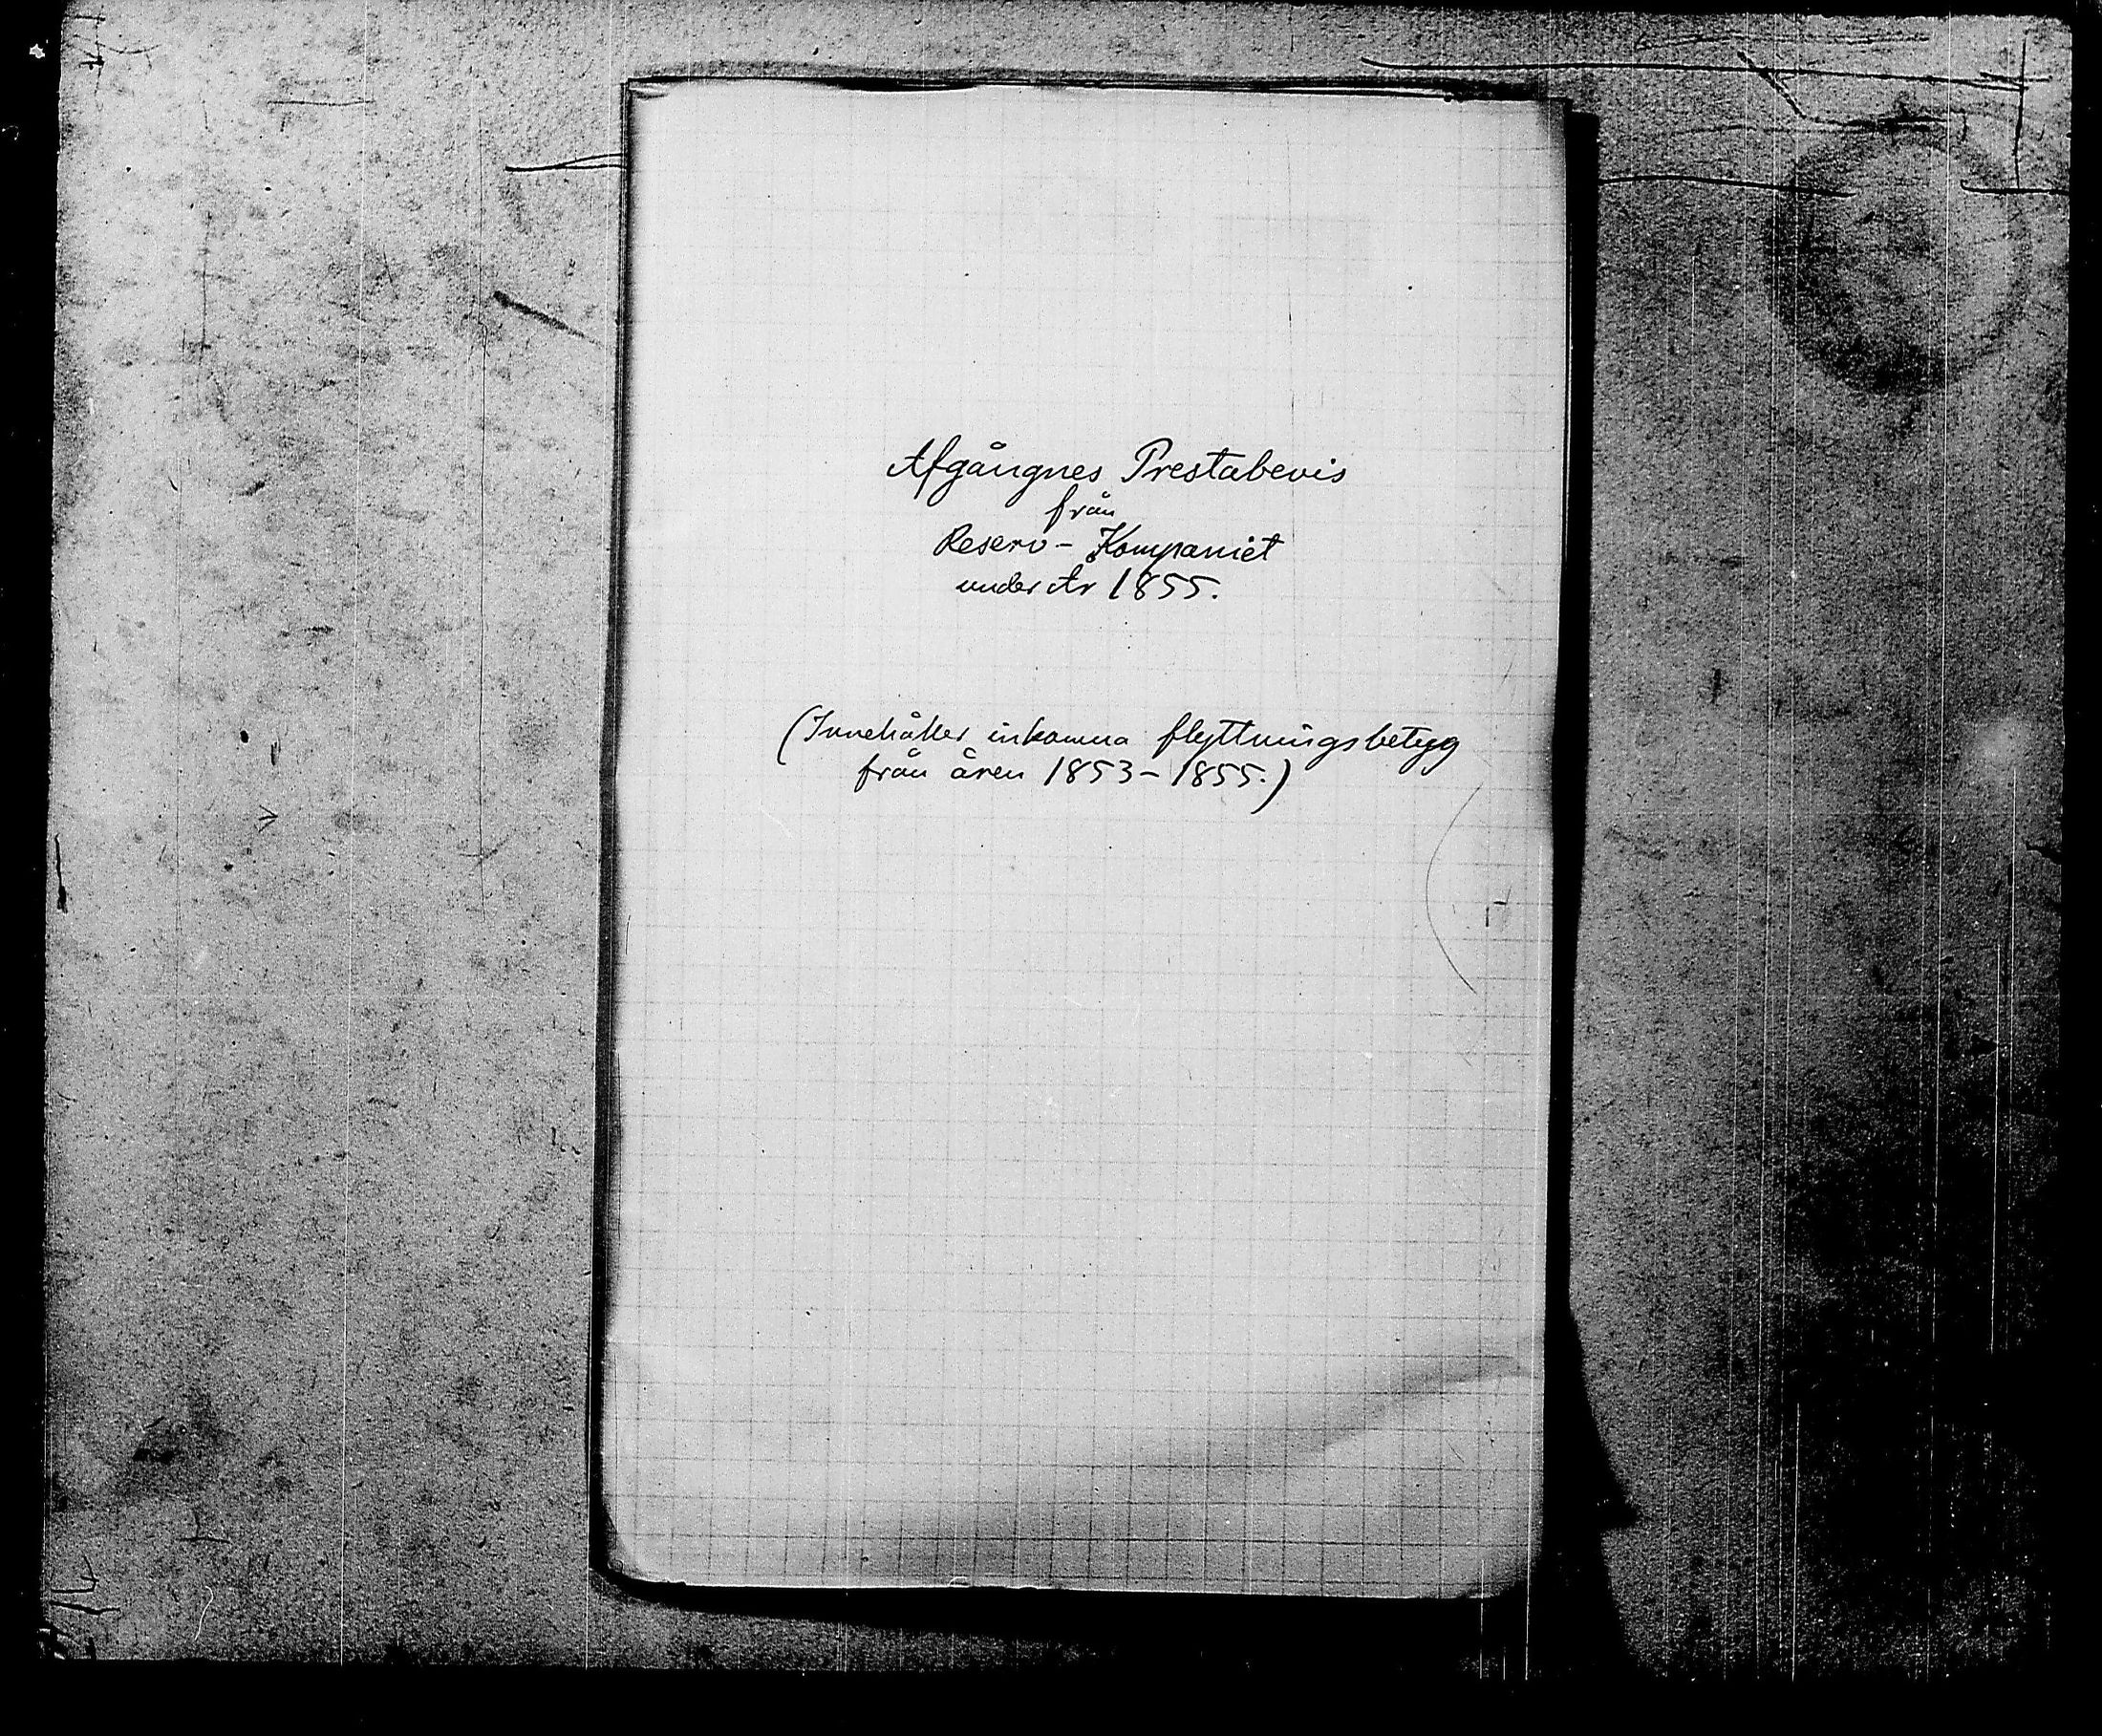 Afgångnes Prestabevis
från
Reserv - Kompaniet
under År 1855.
(Innehåller inkomna flyttningsbetyg
från åren 1853 - 1855.)